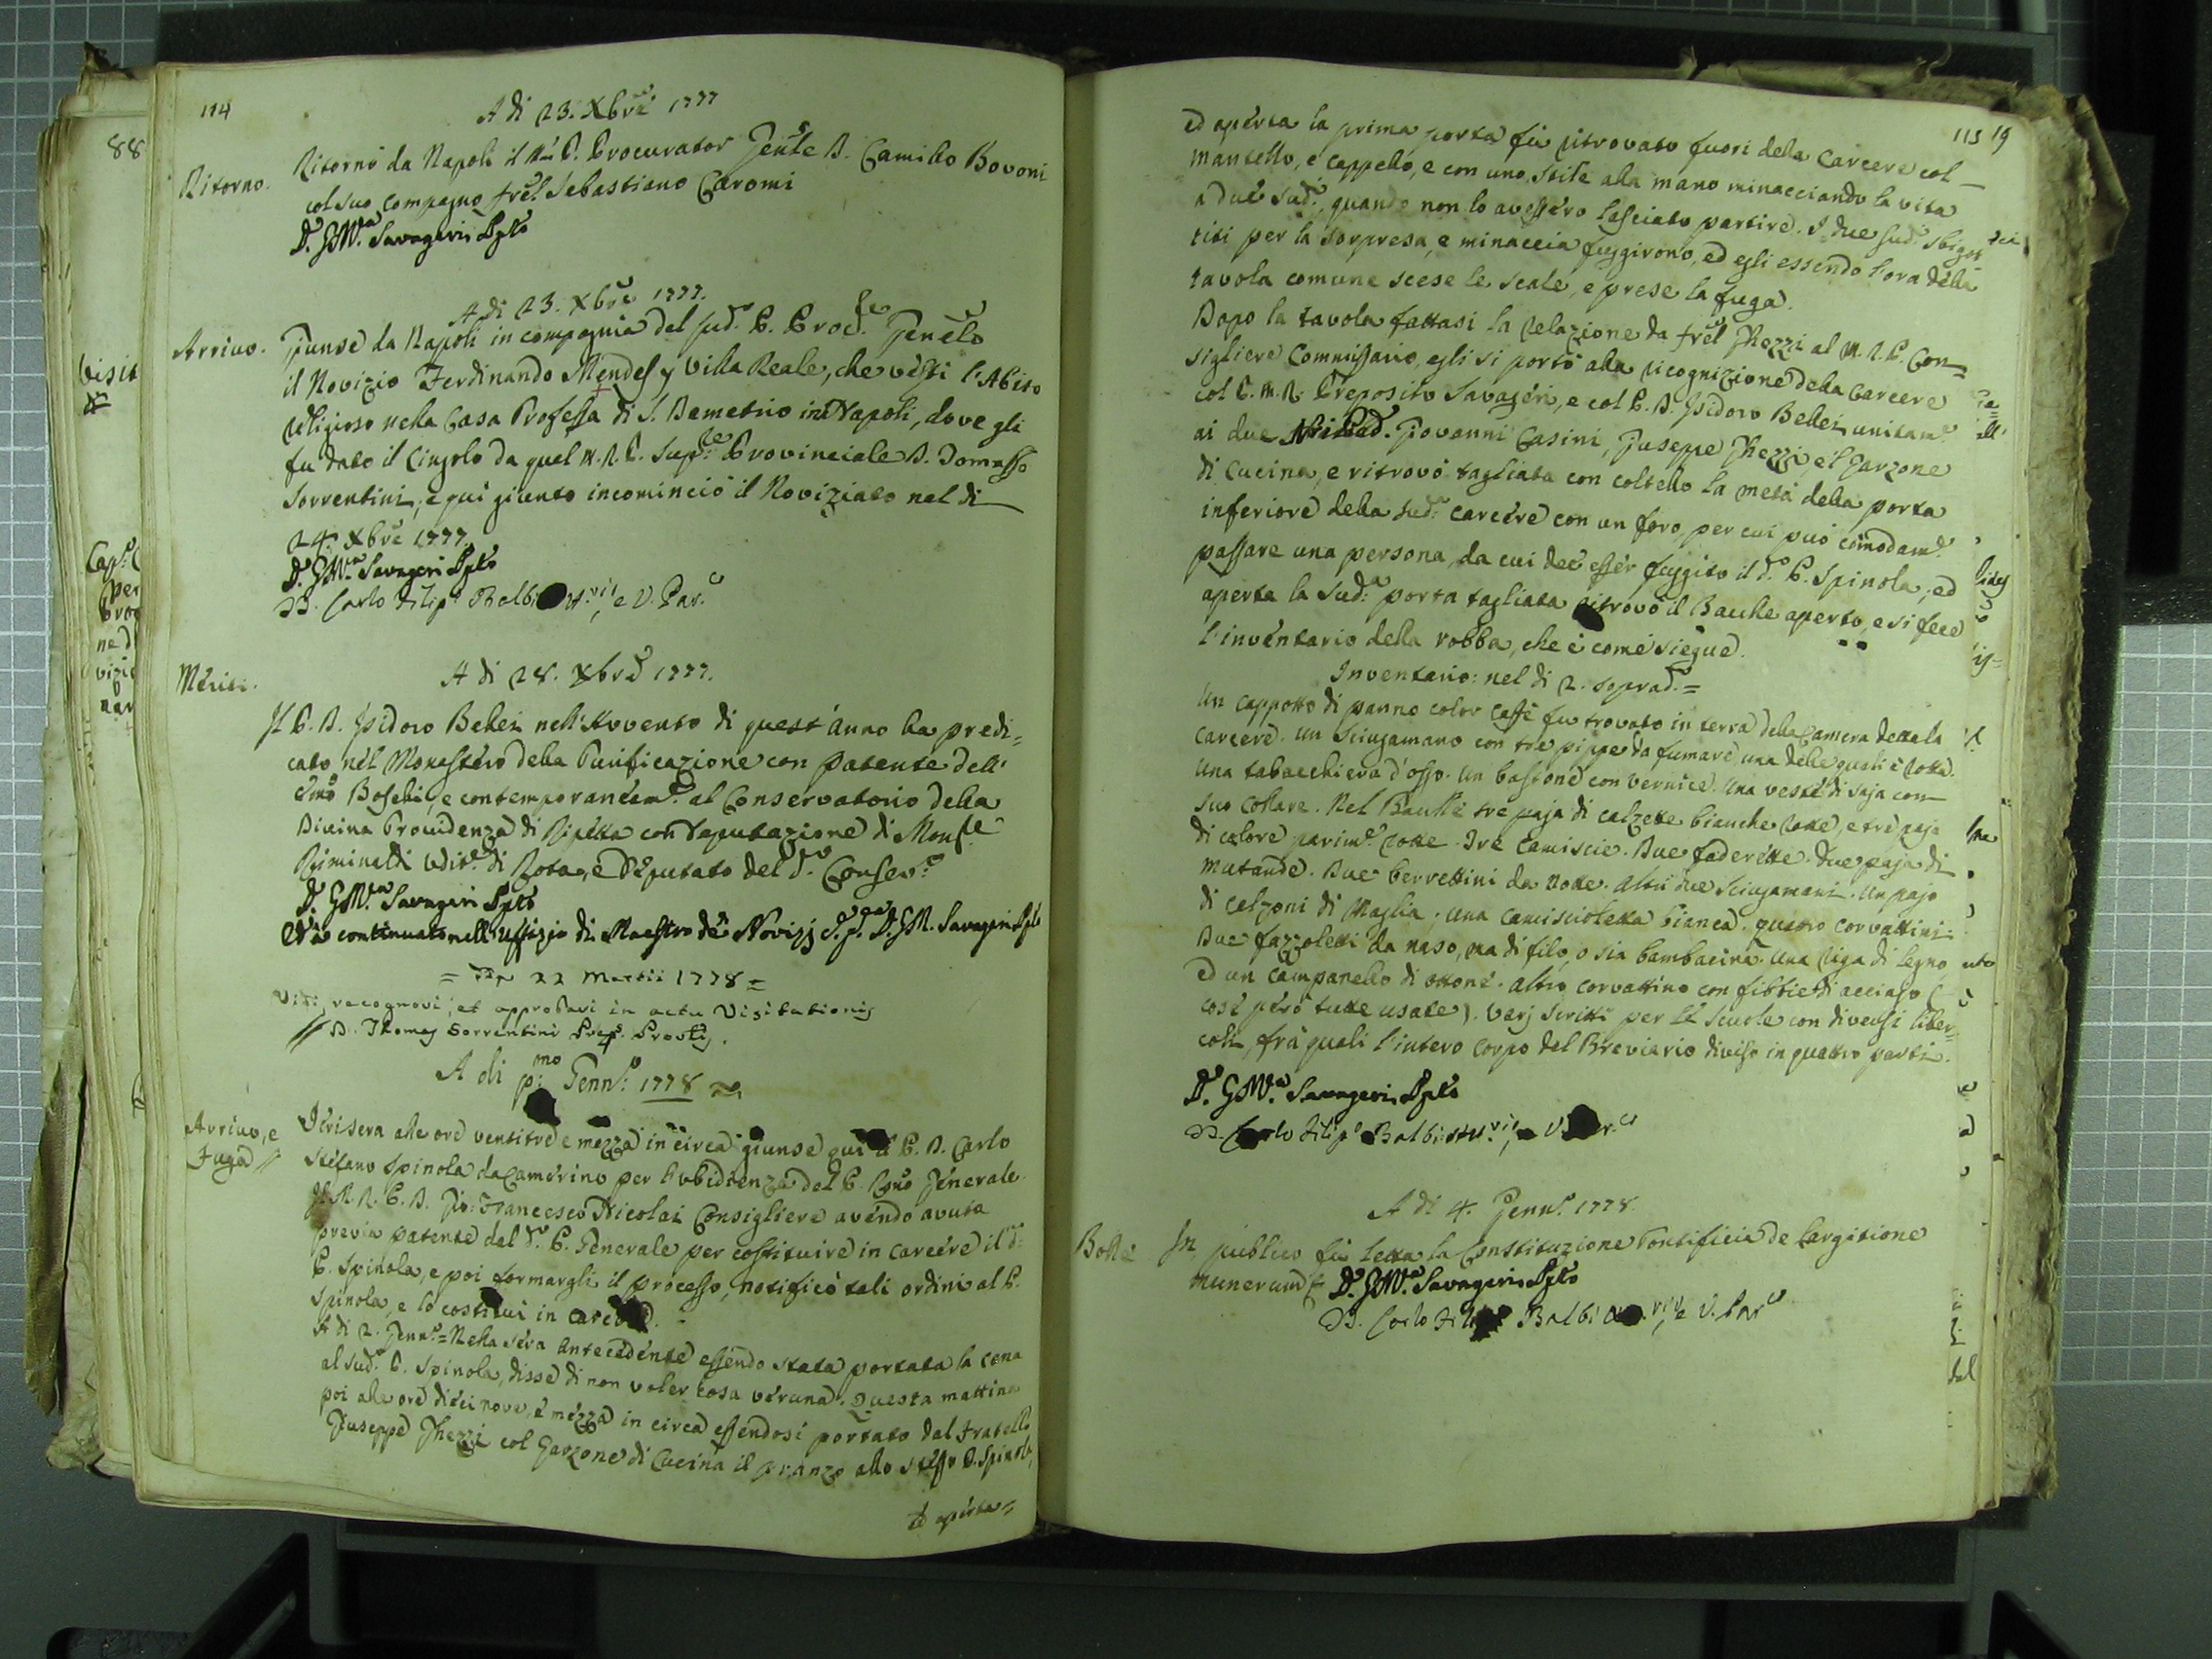 114
A dì 23. Xbre 1777
Ritorno.
Ritornò da Napoli il P. Procurator Gen.le D. Camillo Bovoni
col suo compagno frel. Sebastiano Caromi
D. G. M.a Savageri Ppto
A dì 23. Xbre 1777.
Arrivo.
Giunse da Napoli in compagnia del sud.o P. Proc.re Gen.le
il Novizio Ferdinando Mendes y Villa Reale, che vestì l'Abito
religioso nella Casa Professa di S. Demetrio in Napoli, dove gli
fu dato il Cingolo da quel M. R. P. Sup.re Provinciale D. Tomasso
Sorrentini, e qui giunto incominciò il Noviziato nel dì
24. Xbre 1777.
D. G. M.a Savageri Ppto
D. Carlo Filip.o Balbi Att.rio, e V. Par.o
A dì 28. Xbre 1777.
Meriti.
Il P. D. Isidoro Bellei nell'Avvento di quest'anno ha predi=
cato nel Monastero della Purificazione con patente dell'
Emo Boschi, e contemporaneam.e al Conservatorio della
Divina Providenza di Ripetta con Deputazione di Mons.e
Riminaldi Udit.e di Rota, e Deputato del d.o Conser.o
D. G. M.a Savageri Ppto
Ed à continuato nell'Uffizio di Maestro de' Novizj D. G. M. Savageri Ppto
= Die 22 Martii 1778 =
Vidi, recognovi, et approbavi in actu Visitationis
D. Thomas Sorrentini Prep. Prov.lis.
A dì p:mo Genn.o 1778
Arrivo, e
Fuga
Ieri sera alle ore ventitre e mezza in circa giunse qui il P. D. Carlo
Stefano Spinola da Camerino per Ubidienza del P. Rmo Generale.
Il M. R. P. D. Gio: Francesco Nicolai Consigliere avendo avuta
previa patente del d.o P. Generale per costituire in carcere il d.o
P. Spinola, e poi formargli il processo, notificò tali ordini al P.
Spinola, e lo costituì in carcere.
A dì 2. Genn.o = Nella sera antecedente essendo stata portata la cena
al sud.o P. Spinola, disse di non voler cosa veruna. Questa mattina
poi alle ore diecinove, e mezza in circa essendosi portato dal Fratello
Giuseppe Ghezzi col Garzone di Cucina il pranzo allo stesso P. Spinola,
ed aperta=
115 19
ed aperta la prima porta fù ritrovato fuori della carcere col
mantello, e cappello, e con uno stile alla mano minacciando la vita
a due sud.i, quando non lo avessero lasciato partire. I due sud.i sbigot
titi per la sorpresa, e minaccia fuggirono, ed egli essendo l'ora della
tavola comune scese le scale, e prese la fuga.
Dopo la tavola fattasi la relazione da frel Ghezzi al M. R. P. Con=
sigliere Commissario, egli si portò alla ricognizione della carcere
col P. M. R. Preposito Savageri, e col P. D. Isidoro Bellei unitam.e
ai due Giovanni Casini, Giuseppe Ghezzi e il Garzone
di Cucina, e ritrovò tagliata con coltello la metà della porta
inferiore della sud.a carcere con un foro, per cui può comodam.e
passare una persona, da cui dee esser fuggito il d.o P. Spinola; ed
aperta la sud.a porta tagliata ritrovò il Baulle aperto, e si fece
l'inventario della robba, che è come siegue.
Inventario: nel dì 2. soprad.o =
Un cappotto di panno color caffè fu trovato in terra della Camera detta la
carcere. Un sciugamano con tre pippe da fumare una delle quali è rotta.
Una tabacchiera d'osso. Un bastone con vernice. Una veste di saja con
suo collare. Nel Baulle tre paja di calzette bianche rotte, e tre paja
di colore parim.e rotte. Tre camiscie. Due foderette. Due paja di
mutande. Due berrettini da notte. Altri due sciugamani. Un pajo
di calzoni di maglia; una camiscioletta bianca. quattro corvattini.
Due fazzoletti da naso, ma di filo, o sia bambacina. Una riga di legno
ed un campanello di ottone. altro corvattino con fibbie di acciajo (
cose però tutte usate). Varj scritti per le scuole con diversi liber=
coli, frà quali l'intero corpo del Breviario diviso in quattro parti.
D. G. M.a Savageri Ppto
D. Carlo Filip.o Balbi Att.rio, e V. Par.o
A dì 4. Genn.o 1778.
Bolle
In publico fù letta la Constituzione Pontificia de Largitione
munerum D. G. M.a Savageri Ppto
D. Carlo Filip.o Balbi Att.rio, e V. Par.o
88
visit